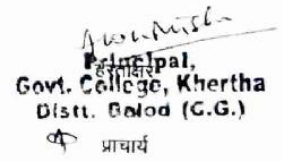 Principal,
हस्ताक्षर
Govt. College, Khertha
Distt. Balod (C.G.)
प्राचार्य